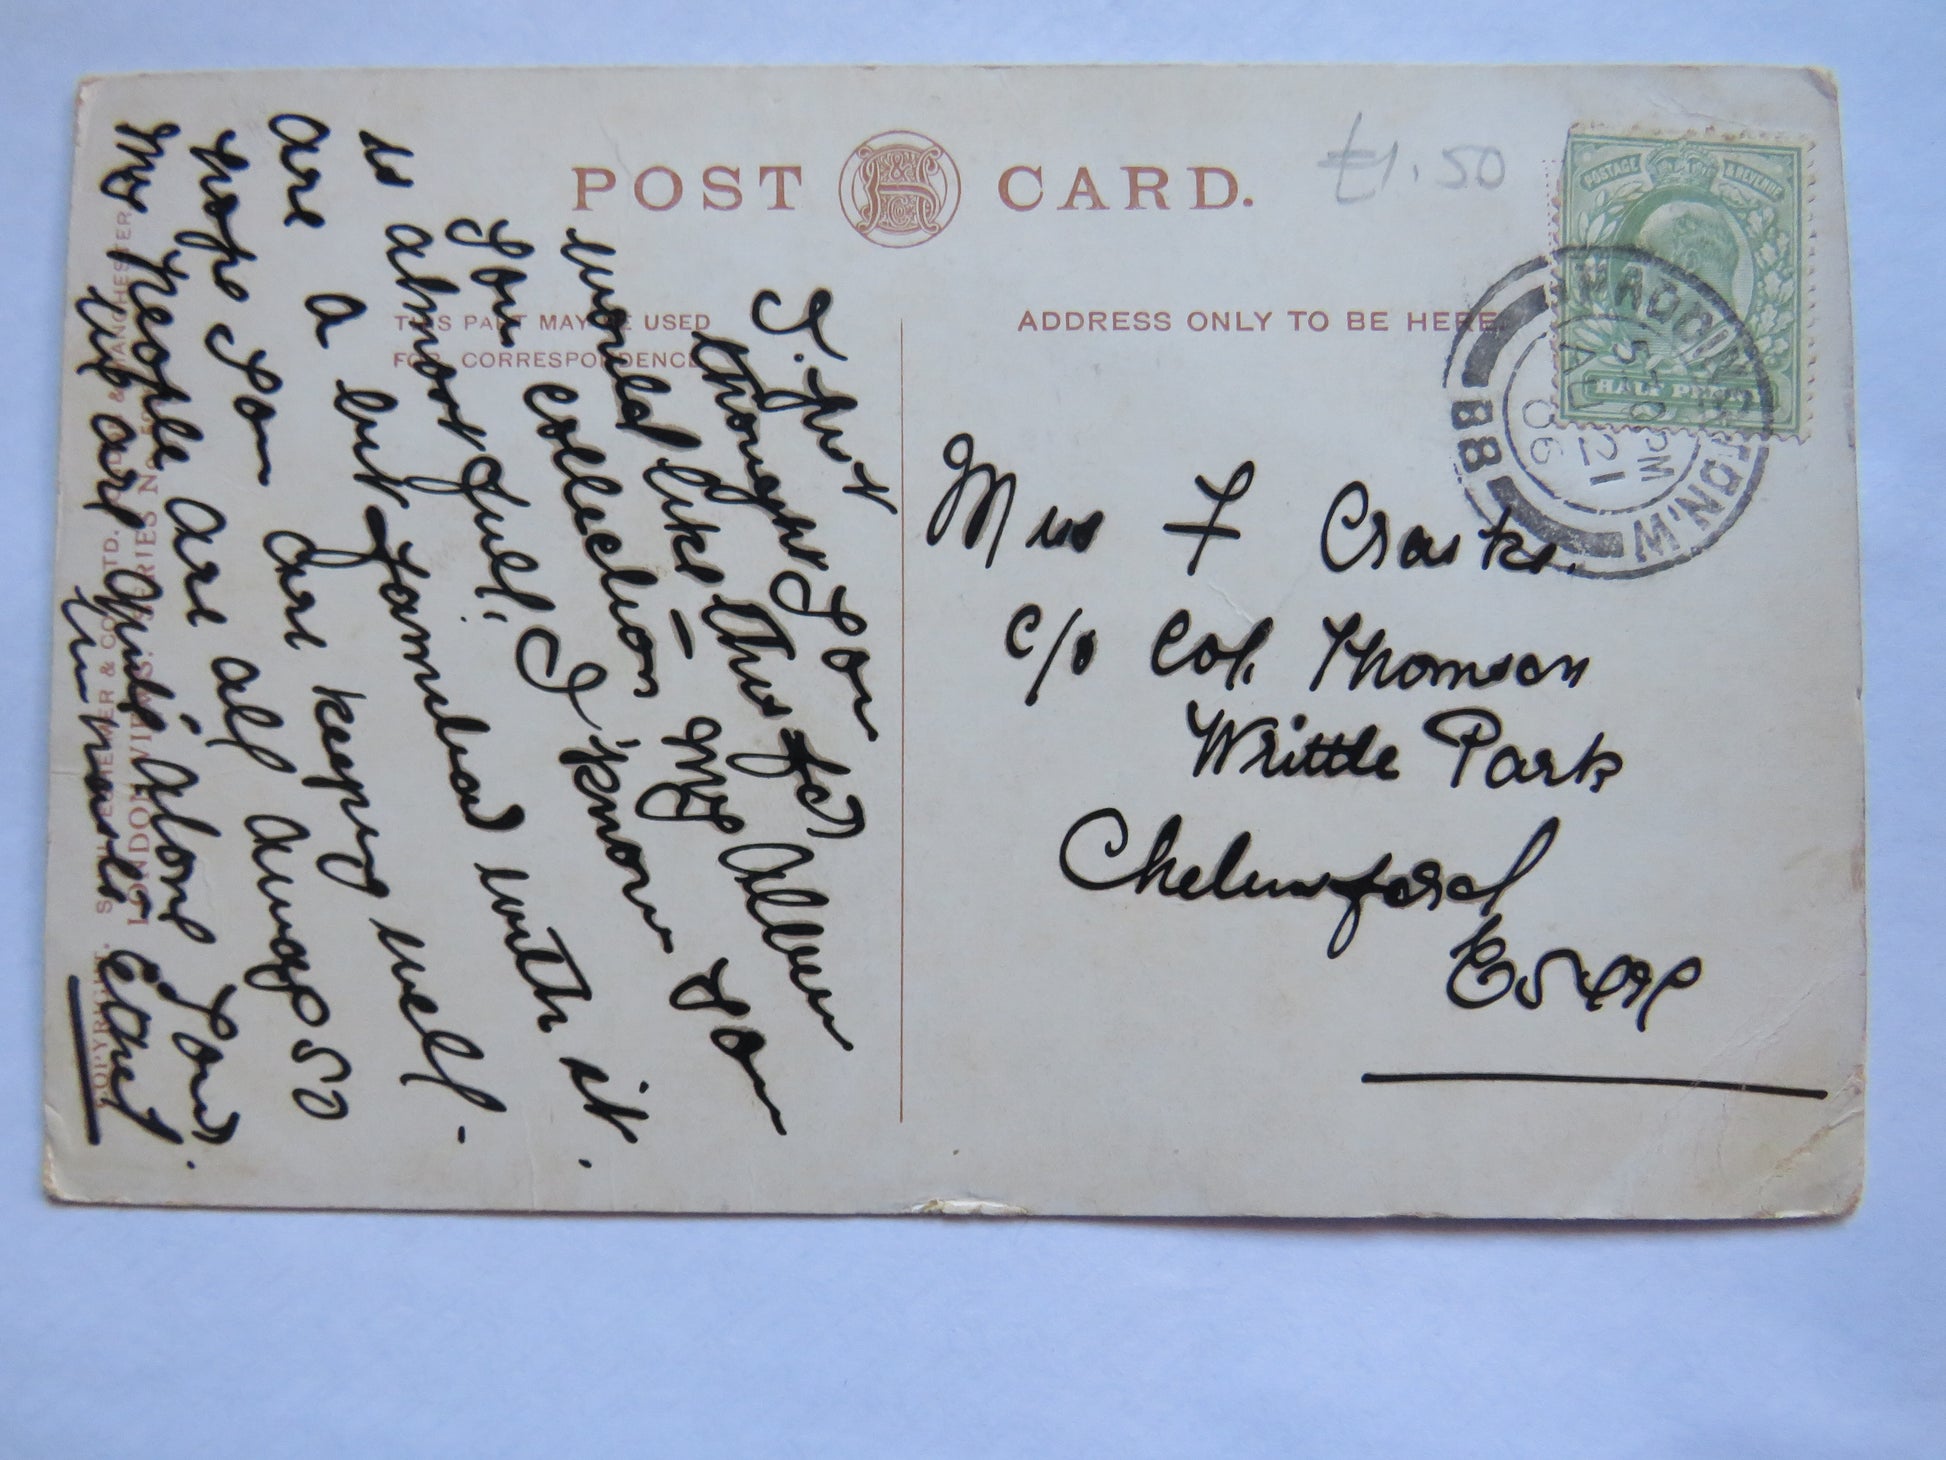 POST CARD.
£1.50
POSTAGE & REVENUE
HALF PENNY
PADDINGTON.W
PM
21
06
88
THIS PART MAY BE USED
FOR CORRESPONDENCE
ADDRESS ONLY TO BE HERE
I. just
thought You
would like this for
Your collection – My Album
is almost full. I know You
are a with it.
hope You are keeping well -
My people are all away so
we are quite alone Yours.
in haste Ethel
Miss F Craske.
c/o Col. Thomson
Writtle Park
Chelmsford
Essex
COPYRIGHT. & CO LTD. & MANCHESTER
LONDON VIEWS. SERIES No